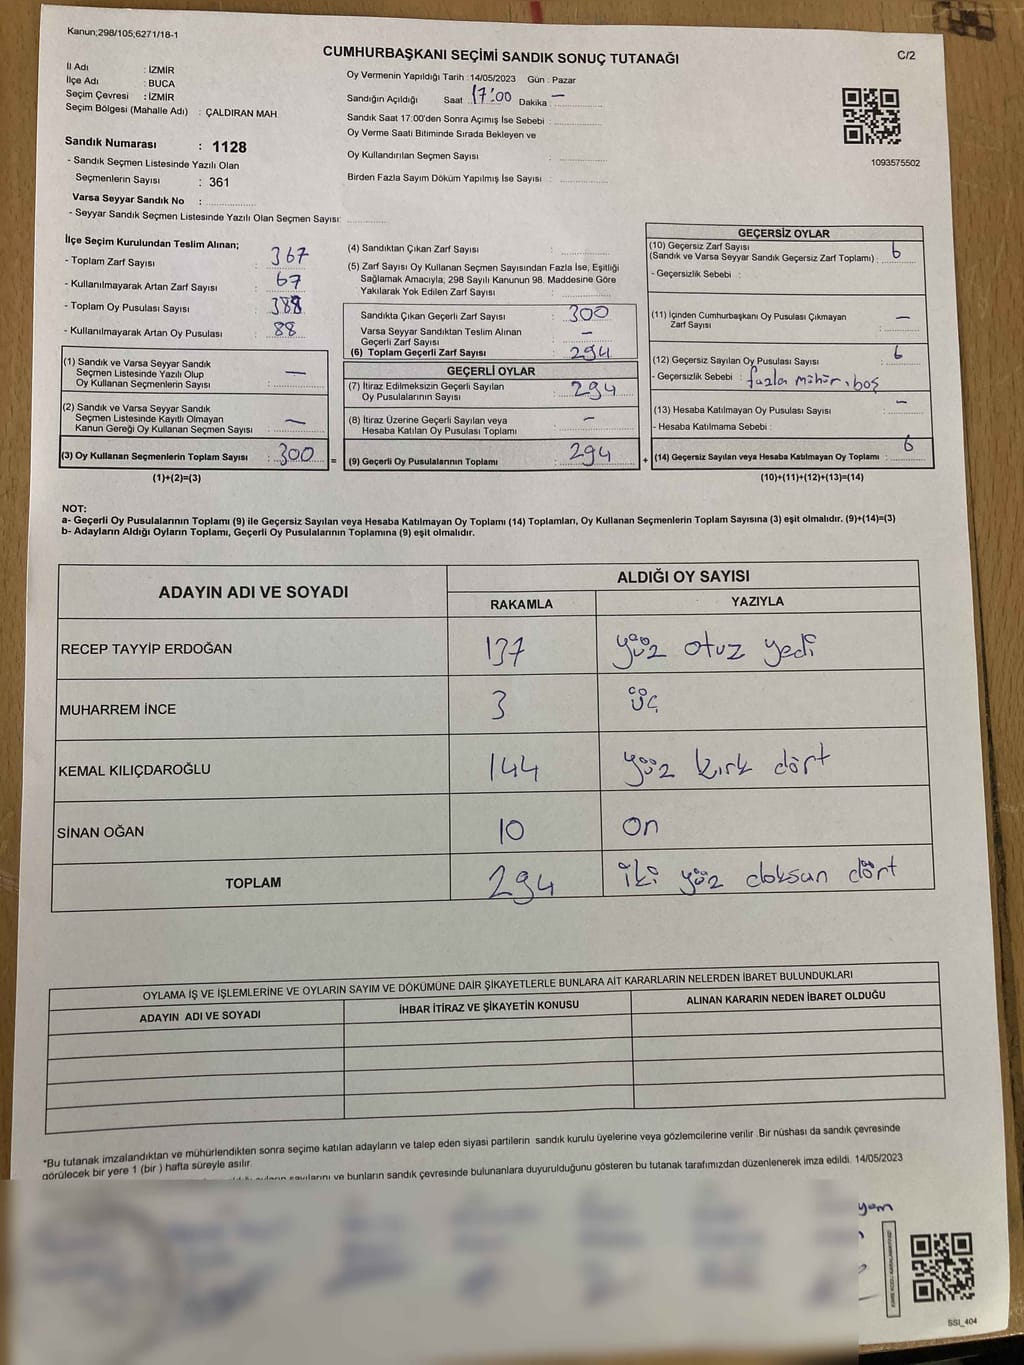 Kanun;298/105;6271/18-1
C/2
CUMHURBAŞKANI SEÇİMİ SANDIK SONUÇ TUTANAĞI
İl Adı : İZMİR
İlçe Adı : BUCA
Seçim Çevresi : İZMİR
Seçim Bölgesi (Mahalle Adı) : ÇALDIRAN MAH.
Sandık Numarası : 1128
- Sandık Seçmen Listesinde Yazılı Olan
Seçmenlerin Sayısı : 361
Varsa Seyyar Sandık No :
- Seyyar Sandık Seçmen Listesinde Yazılı Olan Seçmen Sayısı:
Oy Vermenin Yapıldığı Tarih :14/05/2023 Gün : Pazar
Sandığın Açıldığı Saat 17:00 Dakika : —
Sandık Saat 17:00'den Sonra Açımış İse Sebebi :
Oy Verme Saati Bitiminde Sırada Bekleyen ve
Oy Kullandırılan Seçmen Sayısı :
Birden Fazla Sayım Döküm Yapılmış İse Sayısı :
1093575502
İlçe Seçim Kurulundan Teslim Alınan;
- Toplam Zarf Sayısı : 367
- Kullanılmayarak Artan Zarf Sayısı : 67
- Toplam Oy Pusulası Sayısı : 388
- Kullanılmayarak Artan Oy Pusulası : 88
(1) Sandık ve Varsa Seyyar Sandık
Seçmen Listesinde Yazılı Olup
Oy Kullanan Seçmenlerin Sayısı : —
(2) Sandık ve Varsa Seyyar Sandık
Seçmen Listesinde Kayıtlı Olmayan
Kanun Gereği Oy Kullanan Seçmen Sayısı : —
(3) Oy Kullanan Seçmenlerin Toplam Sayısı : 300
(1)+(2)=(3)
=
(4) Sandıktan Çıkan Zarf Sayısı :
(5) Zarf Sayısı Oy Kullanan Seçmen Sayısından Fazla İse, Eşitliği
Sağlamak Amacıyla; 298 Sayılı Kanunun 98. Maddesine Göre
Yakılarak Yok Edilen Zarf Sayısı :
Sandıkta Çıkan Geçerli Zarf Sayısı : 300
Varsa Seyyar Sandıktan Teslim Alınan
Geçerli Zarf Sayısı : —
(6) Toplam Geçerli Zarf Sayısı : 294
GEÇERLİ OYLAR
(7) İtiraz Edilmeksizin Geçerli Sayılan
Oy Pusulalarının Sayısı : 294
(8) İtiraz Üzerine Geçerli Sayılan veya
Hesaba Katılan Oy Pusulası Toplamı : —
(9) Geçerli Oy Pusulalarının Toplamı : 294
+
GEÇERSİZ OYLAR
(10) Geçersiz Zarf Sayısı
(Sandık ve Varsa Seyyar Sandık Geçersiz Zarf Toplamı) : 6
- Geçersizlik Sebebi :
(11) İçinden Cumhurbaşkanı Oy Pusulası Çıkmayan
Zarf Sayısı : —
(12) Geçersiz Sayılan Oy Pusulası Sayısı : 6
- Geçersizlik Sebebi : fazla mühür, boş
(13) Hesaba Katılmayan Oy Pusulası Sayısı : —
- Hesaba Katılmama Sebebi :
(14) Geçersiz Sayılan veya Hesaba Katılmayan Oy Toplamı : 6
(10)+(11)+(12)+(13)=(14)
NOT:
a- Geçerli Oy Pusulalarının Toplamı (9) ile Geçersiz Sayılan veya Hesaba Katılmayan Oy Toplamı (14) Toplamları, Oy Kullanan Seçmenlerin Toplam Sayısına (3) eşit olmalıdır. (9)+(14)=(3)
b- Adayların Aldığı Oyların Toplamı, Geçerli Oy Pusulalarının Toplamına (9) eşit olmalıdır.
ADAYIN ADI VE SOYADI
ALDIĞI OY SAYISI
RAKAMLA YAZIYLA
RECEP TAYYİP ERDOĞAN 137 yüz otuz yedi
MUHARREM İNCE 3 üç
KEMAL KILIÇDAROĞLU 144 yüz kırk dört
SİNAN OĞAN 10 on
TOPLAM 294 iki yüz doksan dört
OYLAMA İŞ VE İŞLEMLERİNE VE OYLARIN SAYIM VE DÖKÜMÜNE DAİR ŞİKAYETLERLE BUNLARA AİT KARARLARIN NELERDEN İBARET BULUNDUKLARI
ADAYIN ADI VE SOYADI İHBAR İTİRAZ VE ŞİKAYETİN KONUSU ALINAN KARARIN NEDEN İBARET OLDUĞU
*Bu tutanak imzalandıktan ve mühürlendikten sonra seçime katılan adayların ve talep eden siyasi partilerin sandık kurulu üyelerine veya gözlemcilerine verilir .Bir nüshası da sandık çevresinde
görülecek bir yere 1 (bir ) hafta süreyle asılır.
sayılarını ve bunların sandık çevresinde bulunanlara duyurulduğunu gösteren bu tutanak tarafımızdan düzenlenerek imza edildi. 14/05/2023
SSI_404